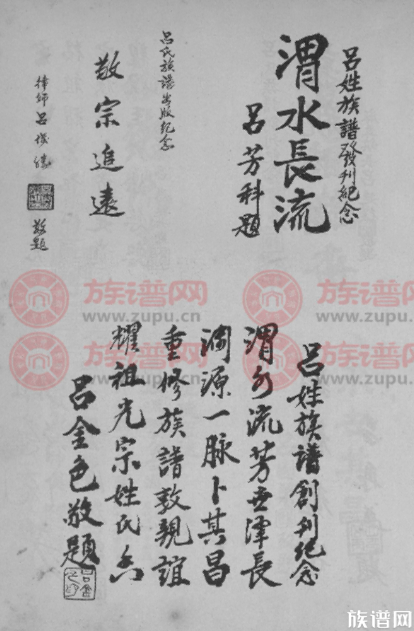 呂姓族譜發刊紀念
渭水長流
呂芳科題
呂氏族譜出版紀念
敬宗追遠
律師呂俊儒
敬題
呂姓族譜創刊紀念
渭水流芳世澤長
淵源一脉卜其昌
重修族譜敦親誼
耀祖光宗姓氏香
呂金色敬題
族谱网
www.zupu.cn
族谱网
www.zupu.cn
族谱网
www.zupu.cn
族谱网
www.zupu.cn
族谱网
www.zupu.cn
族谱网
www.zupu.cn
族谱网